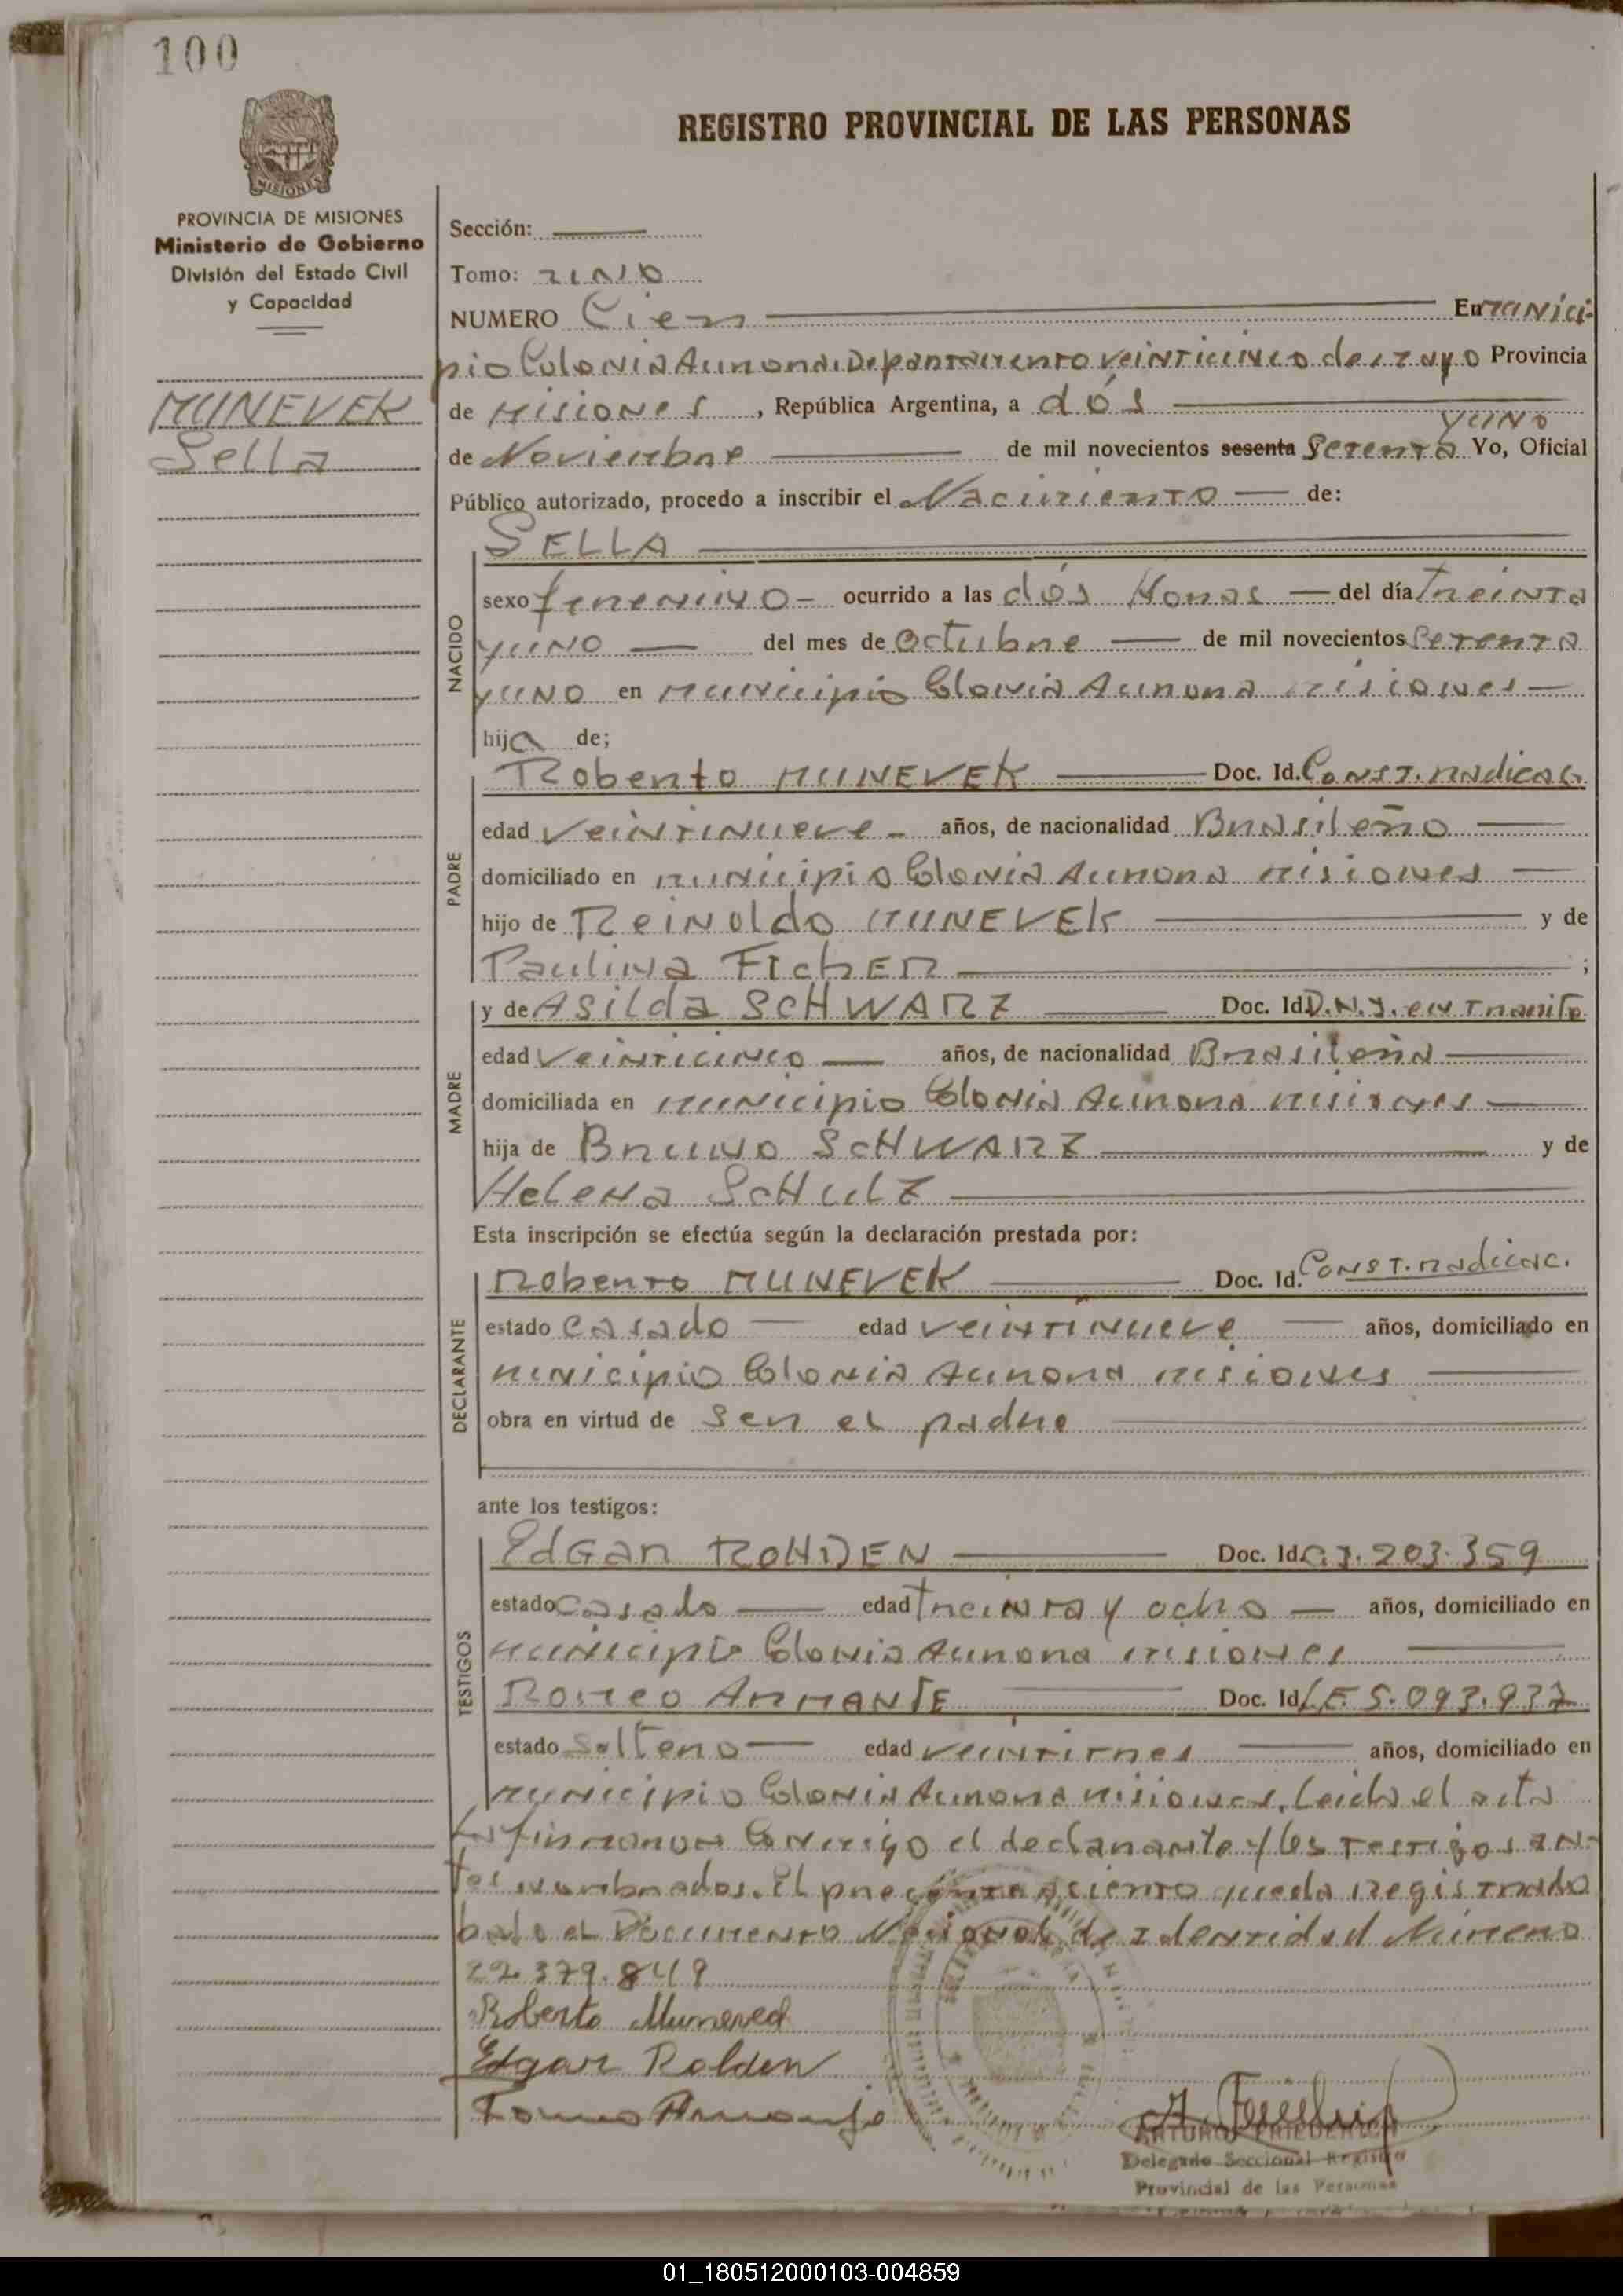 100
REGISTRO PROVINCIAL DE LAS PERSONAS
PROVINCIA DE MISIONES
Ministerio de Gobierno
División del Estado Civil
y Capacidad
MUNEVEK
Sella
Sección:
Tomo: UNO
NUMERO Cien En Munici-
pio Colonia Aurora, Departamento veinticinco de Mayo Provincia
de Misiones, República Argentina, a dós
de Noviembre de mil novecientos sesenta Setenta yuno Yo, Oficial
Público autorizado, procedo a inscribir el Nacimiento de:
SELLA
NACIDO
sexo femenino ocurrido a las dós Horas del día Treinta
yuno del mes de Octubre de mil novecientos Setenta
yuno en Municipio Colonia Aurora Misiones
hija de;
PADRE
Roberto MUNEVEK Doc. Id. Const. Radicac.
edad veintinueve años, de nacionalidad Brasileño
domiciliado en municipio Colonia Aurora Misiones
hijo de Reinoldo MUNEVEK y de
Paulina FIchER ;
MADRE
y de Asilda SCHWARZ Doc. Id. D.N.I. en Tramite
edad veinticinco años, de nacionalidad Brasileña
domiciliada en municipio Colonia Aurora Misiones
hija de Bruno SCHWARZ y de
Helena SCHULZ
Esta inscripción se efectúa según la declaración prestada por:
DECLARANTE
Roberto MUNEVEK Doc. Id. Const. Radicac.
estado casado edad veintinueve años, domiciliado en
municipio Colonia Aurora Misiones
obra en virtud de ser el padre
ante los testigos:
TESTIGOS
Edgar ROHDEN Doc. Id. C.I. 203.359
estado casado edad Treinta y ocho años, domiciliado en
municipio Colonia Aurora Misiones
Romeo ARMANJE Doc. Id. L.E. 5.093.937
estado Soltero edad veintitres años, domiciliado en
municipio Colonia Aurora Misiones. Leida el acta
la firmaron Conmigo el declarante y los Testigos an-
tes nombrados. El presente asiento queda registrado
bajo el Documento Nacional de Identidad Número
22.379.849
Roberto Muneved
Edgar Rohden
Romeo Armanje
ARTURO FRIEDERICH
Delegado Seccional Registro
Provincial de las Personas
01_180512000103-004859